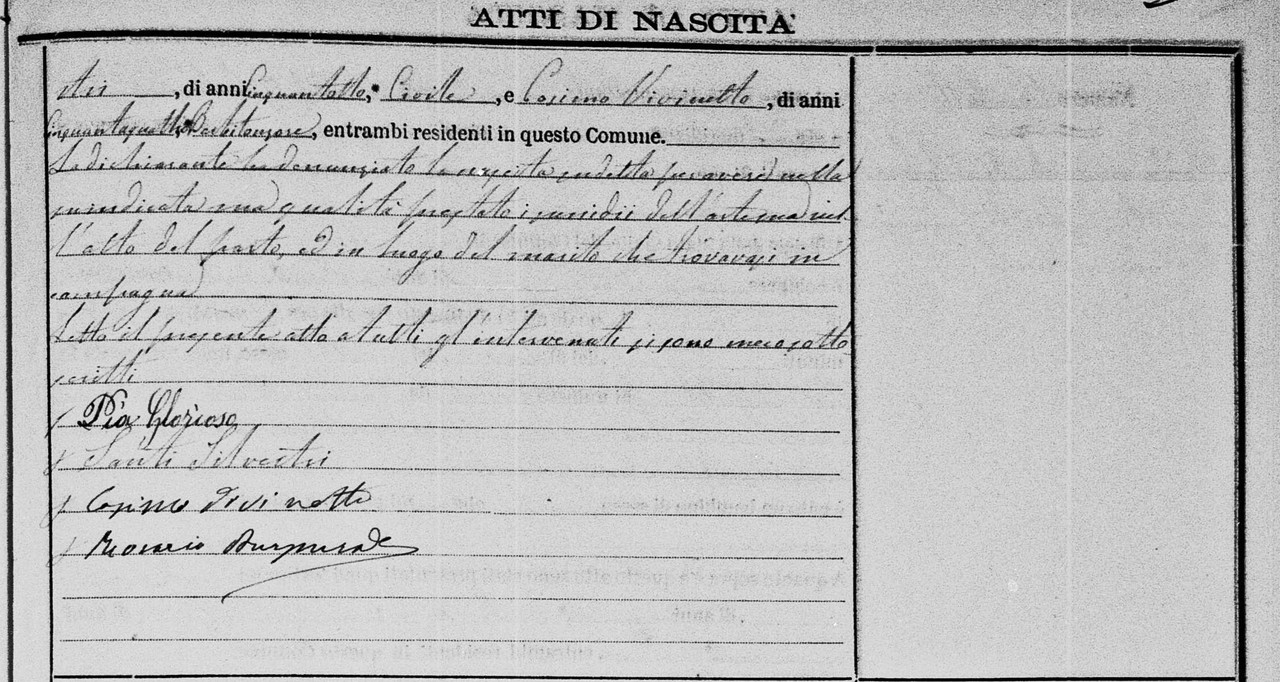 ATTI DI NASCITA'
stri, di anni cinquantotto, Civile, e Cosimo Vivinetto, di anni
cinquantaquattro, Barbitonsore, entrambi residenti in questo Comune.
La dichiarante ha denunziato la nascita suddetta per aversi nella
suindicata sua qualità prestato i sussidii dell'arte sua nel
l'atto del parto, ed in luogo del marito che trovavasi in
campagna
Letto il presente atto a tutti gl'intervenuti si sono meco sotto
scritti
Pia Glorioso
Santi Silvestri
Cosimo Vivinetto
Rosario